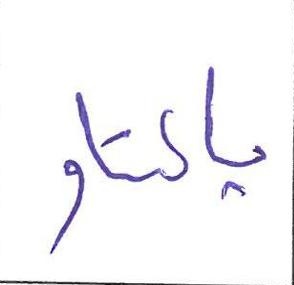 پاکتاو